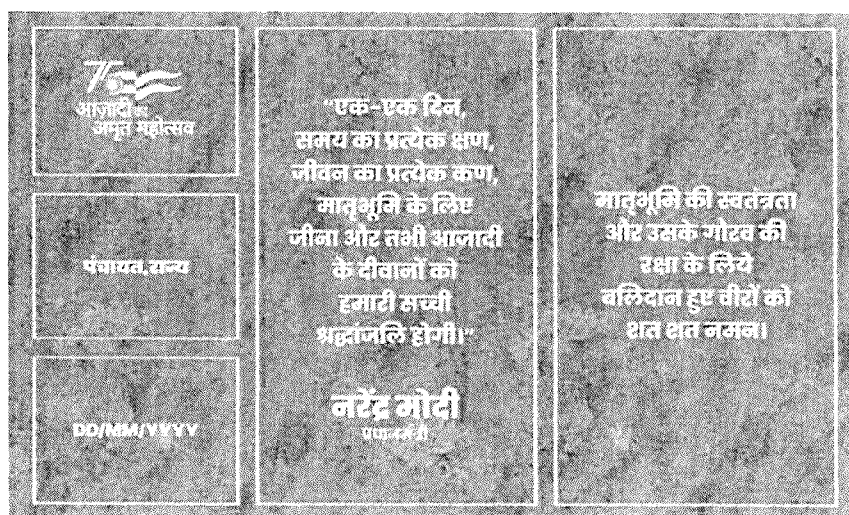 75
आज़ादी का
अमृत महोत्सव
पंचायत, राज्य
DD/MM/YYYY
“एक-एक दिन,
समय का प्रत्येक क्षण,
जीवन का प्रत्येक कण,
मातृभूमि के लिए
जीना और तभी आजादी
के दीवानों को
हमारी सच्ची
श्रद्धांजलि होगी।”
नरेंद्र मोदी
प्रधानमंत्री
मातृभूमि की स्वतंत्रता
और उसके गौरव की
रक्षा के लिये
बलिदान हुए वीरों को
शत शत नमन।